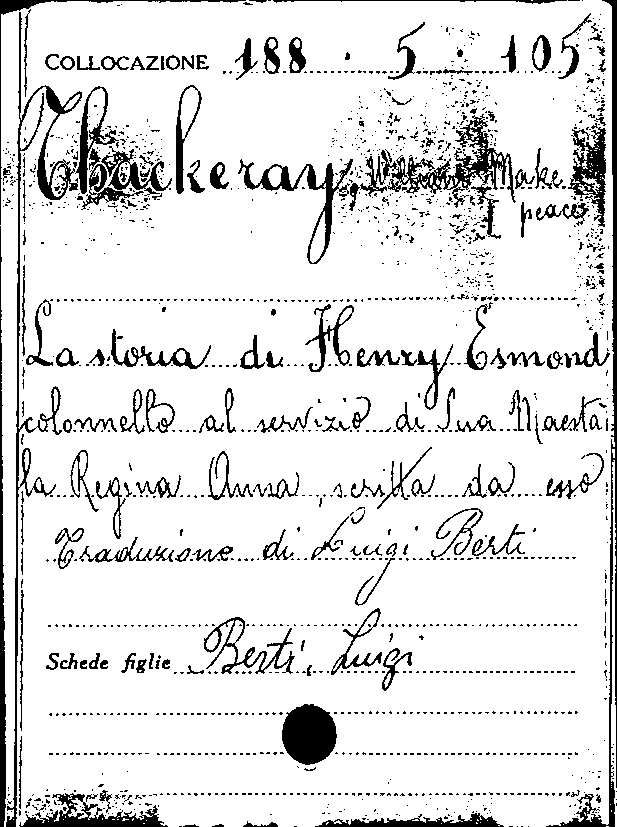 COLLOCAZIONE 188 · 5 · 105
Thackeray, William Make
peace
La storia di Henry Esmond
colonnello al servizio di Sua Maestà
la Regina Anna, scritta da esso
Traduzione di Luigi Berti
Schede figlie Berti, Luigi